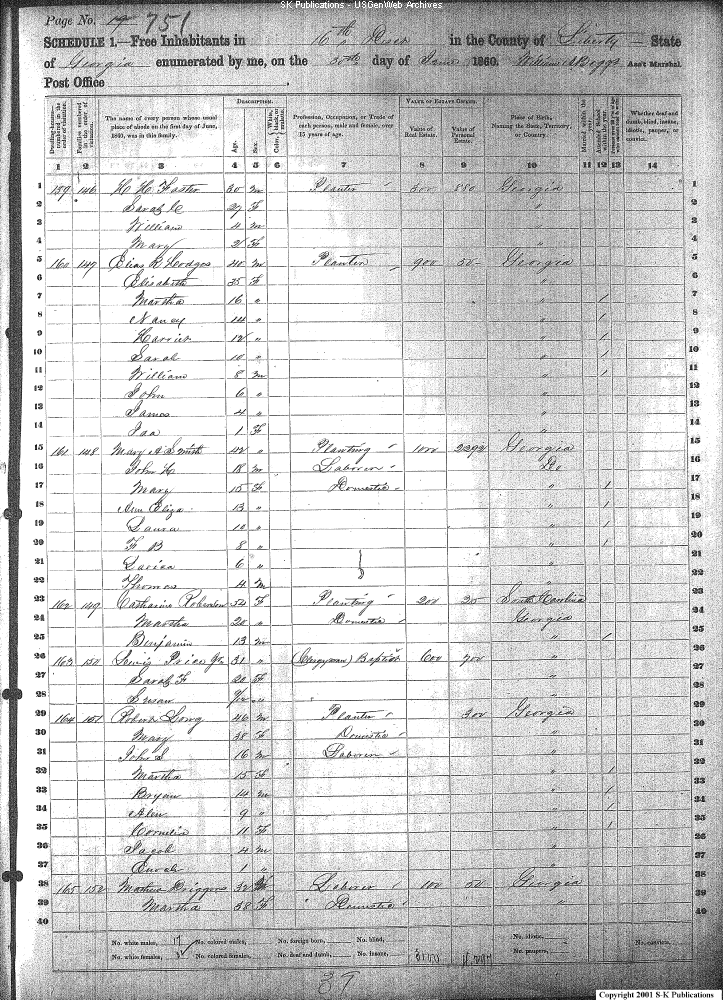 SK Publications - USGenWeb Archives
Page No. 19 751
SCHEDULE 1.—Free Inhabitants in 16th Dist in the County of Liberty State
of Georgia enumerated by me, on the 30th day of June 1860. Ass't Marshal.
Post Office
DESCRIPTION. VALUE OF ESTATE OWNED.
Dwelling-houses—numbered in the order of visitation.
Families numbered in the order of visitation.
The name of every person whose usual place of abode on the first day of June, 1860, was in this family.
Age.
Sex.
Color, White, black, or mulatto.
Profession, Occupation, or Trade of each person, male and female, over 15 years of age.
Value of Real Estate.
Value of Personal Estate.
Place of Birth, Naming the State, Territory, or Country.
Married within the year.
Attended School within the year.
Whether deaf and dumb, blind, insane, idiotic, pauper, or convict.
1 2 3 4 5 6 7 8 9 10 11 12 13 14
1 159 146 H H Foster 30 m Planter 300 880 Georgia 1
2 Sarah C 27 F " 2
3 William 4 m " 3
4 Mary 2 F " 4
5 160 147 Elias R Hodges 40 m Planter 900 50 Georgia 5
6 Elisabeth 35 F " 6
7 Martha 16 " " 1 7
8 Nancy 14 " " 1 8
9 Harriet 12 " " 1 9
10 Sarah 10 " " 1 10
11 William 8 m " 1 11
12 John 6 " " 12
13 James 4 " " 13
14 1 F " 14
15 161 148 Mary A Smith 42 " Planting 1000 2292 Georgia 15
16 John H 18 m Laborer Do 16
17 Mary 15 F Domestic " 1 17
18 Ann Eliza 13 " " 1 18
19 Laura 10 " " 1 19
20 F B 8 " " 1 20
21 6 " " 21
22 Thomas 4 m " 22
23 162 149 Catharine Roberson 54 F Planting 200 30 South Carolina 23
24 Martha 20 " Domestic Georgia 24
25 Benjamin 13 m " 1 25
26 163 150 Lewis Price 31 " (Clergyman) Baptist 600 700 " 26
27 Sarah F 20 F " 27
28 Susan " " 28
29 164 151 Robert Long 46 m Planter 300 Georgia 29
30 Mary 38 F Domestic " 30
31 John S 16 m Laborer " 31
32 Martha 15 F " 1 32
33 Bryan 14 m " 1 33
34 Allen 9 " " 1 34
35 Cornelia 11 F " 1 35
36 Jacob 4 m " 36
37 1 " " 37
38 165 152 Mathew Driggers 32 Laborer 100 50 Georgia 38
39 Martha 38 F Domestic " 39
40 40
No. white males, 17 No. colored males, No. foreign born, No. blind, No. idiotic, No. convicts,
No. white females, No. colored females, No. deaf and dumb, No. insane, No. paupers,
39
Copyright 2001 S-K Publications